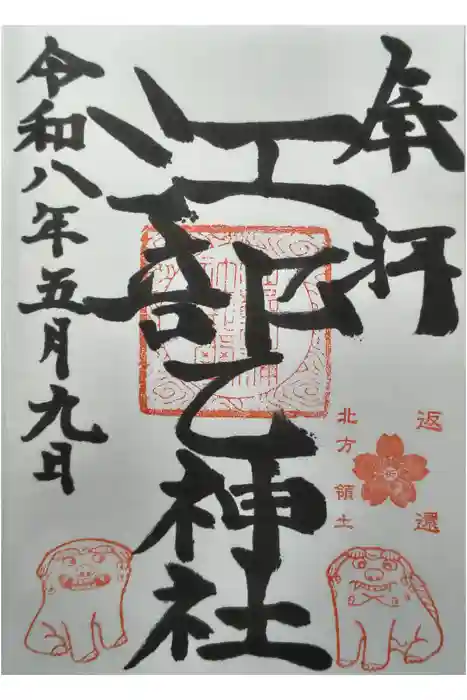 奉拝
北方領土
返還
江部乙神社
令和八年五月九日